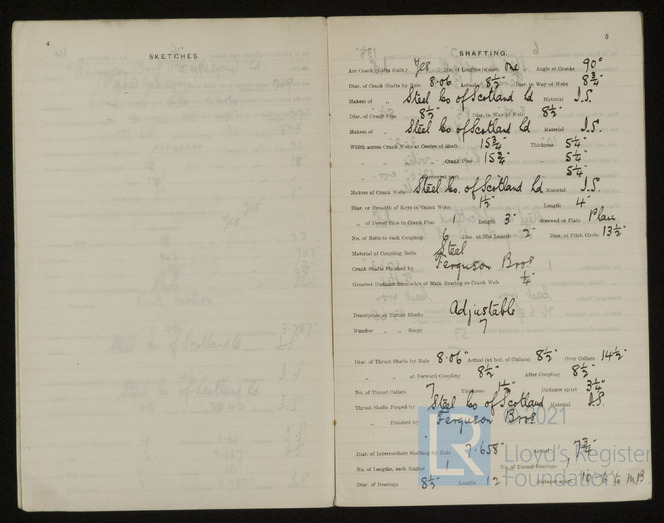 4
SKETCHES
5
SHAFTING.
Are Crank Shafts Built? Yes No. of Lengths in each one Angle of Cranks 90°
Diar. of Crank Shafts by Rule 8·06 Actual 8½" Diar. in Way of Webs 8¾"
Makers of " Steel Co of Scotland Ld Material I.S.
Diar. of Crank Pins 8½" Diar. in Way of Webs 8½"
Makers of " Steel Co of Scotland Ld Material I.S.
Width across Crank Webs at Centre of Shaft 15¾" Thickness 5¼"
" " Crank Pins 15¾" " 5¼"
5¼"
Makers of Crank Webs Steel Co. of Scotland Ld Material I.S.
Diar. or Breadth of Keys in Crank Webs 1½" Length 4"
" of Dowel Pins in Crank Pins 1 Length 3" Screwed or Plain Plain
No. of Bolts in each Coupling 6 Diar. at Mid Length 2" Diar. of Pitch Circle 13½"
Material of Coupling Bolts Steel
Crank Shafts Finished by Ferguson Bros
Greatest Distance from Edge of Main Bearing to Crank Web ¼"
Description of Thrust Blocks Adjustable
Number " " Rings 7
Diar. of Thrust Shafts by Rule 8·06" Actual (at bot. of Collars) 8½" Over Collars 14½"
" " at Forward Coupling 8½" After Coupling 8½"
No. of Thrust Collars 7 Thickness 1½" Distance apart 3¼"
Thrust Shafts Forged by Steel Co of Scotland Material I.S
" " Finished by Ferguson Bros
Diar. of Intermediate Shafting by Rule 7·658" Actual 7¾"
No. of Lengths, each Engine 1 No. of Tunnel Bearings 1
Diar. of Bearings 8½" Length 12" Distance apart 10·6 to M.B.
LR
© 2021
Lloyd's Register
Foundation